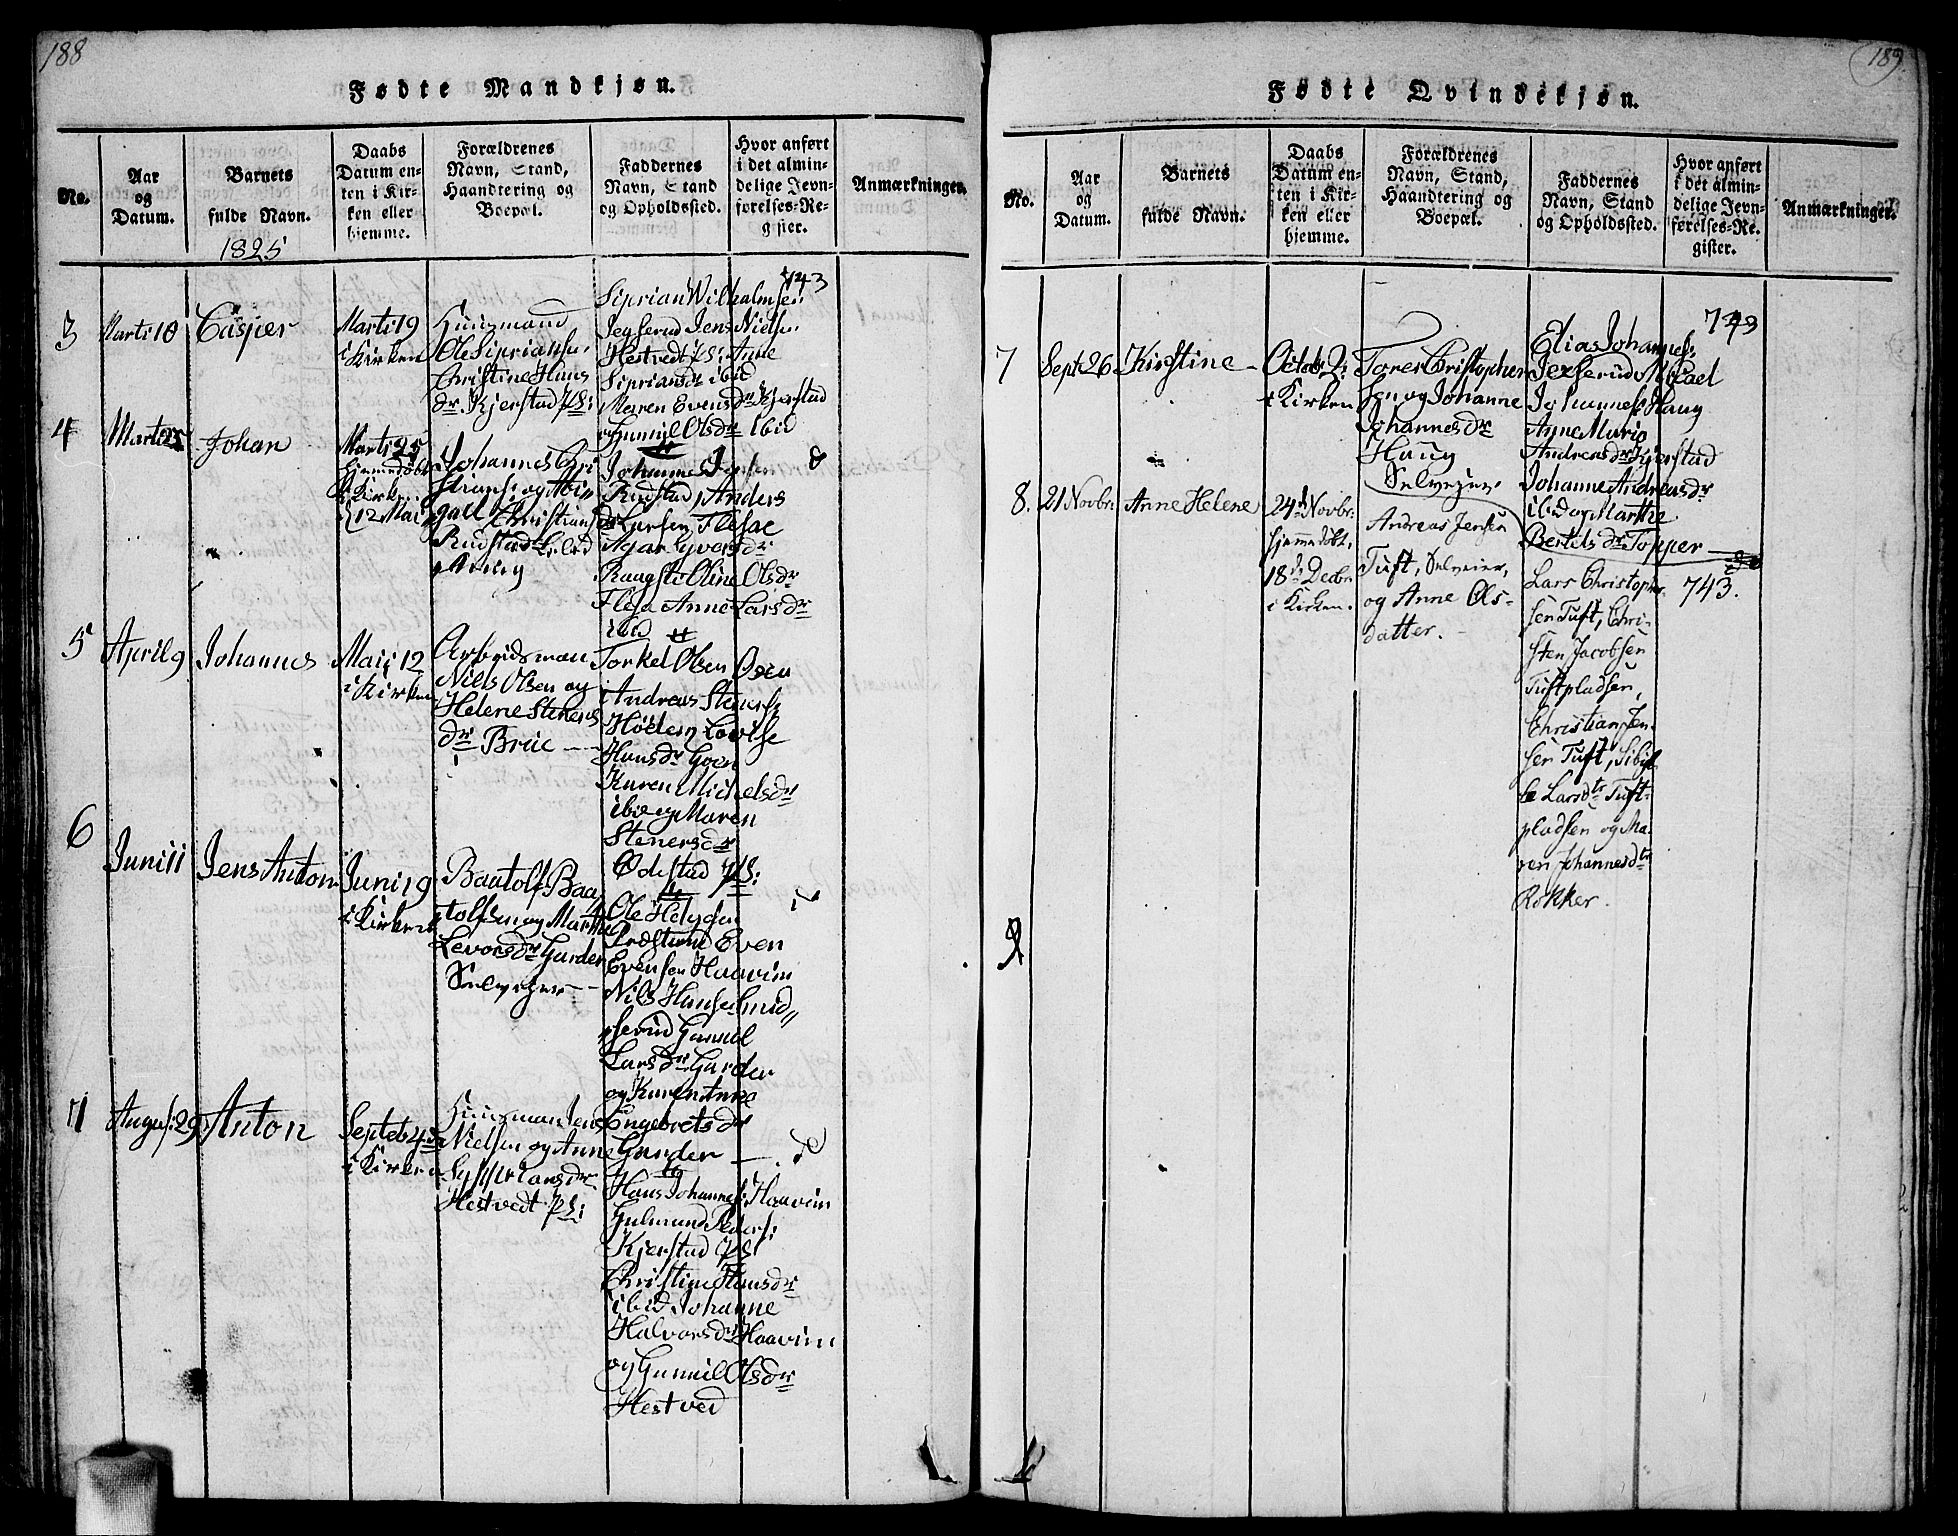 188
Fødte Mandkjøn.
No.
Aar
og
Datum.
Barnets
fulde Navn.
1825
Daabs
Datum en-
ten i Kir-
ken eller
hjemme.
Forældrenes
Navn, Stand,
Haandtering og
Boepæl.
Faddernes
Navn, Stand
og Opholdssted.
Hvor anført
i det almin-
delige Jevn-
førelses-Re-
gister.
Anmærkninger.
3
Marti 10
Casper
Marti 19
i Kirken
Huusmand
Ole Siprians.
Christine Hans
dr. Kjerstad pl:
Siprian Wilhalmsen
Jegserud Jens Nielsen
Hestvedt pl: Anne
Sipriansdr ibid
Maren Evensdr Kjerstad
og Gunnil Olsdr ibid
743
4
Marti 25
Johan
Marti 25
hjemmedøbt
i Kirken
12 Mai
Johannes Chri
stians: og Abi
gael Christiansdr
Rudstad
Johannes Jensen
Rudstad, Anders
Larsen Flesae
Agar Syversdr
Raugsti Oline Olsdr
Flesa Anne Larsdr
ibid
5
April 9
Johannes
Maii 12
i Kirken
Arbeidsman
Niels Olsen og
Helene Steners
dr Brue
Torkel Olsen Oden
Andreas Steners:
Høden Lovise
Hansdr Goen
Karen Michelsdr
ibid og Maren
Stenersdr
Ødestad pl:
6
Juni 11
Jens Anton
Juni 19
i Kirken
Baatolf Baa
tolfsen og Marthe
Levorsdr Garder
Selveger
Ole Helgesen
Præsterud Even
Evensen Haavim
Nils Hansen Smid
serud Gunnil
Larsdr Garder
og Karen Anne
Engebrets dr
Garder
7
August: 29
Anton
Septeb 4de
i Kirken
Huusman Jens
Nielsen og Anne
Sypriansdr
Hestvedt pl:
Hans Johannes: Haavim
Gulmund Peders:
Kjerstad pl:
Christine Hansdr
ibid Johanne
Halvorsdr Haavim
og Gunnil Olsdr
Hestved
189
Fødte Qvindekjøn.
No.
Aar
og
Datum.
Barnets
fulde Navn.
Daabs
Datum en-
ten i Kir-
ken eller
hjemme.
Forældrenes
Navn, Stand,
Haandtering og
Boepæl.
Faddernes
Navn, Stand
og Opholdssted.
Hvor anført
i det almin-
delige Jevn-
førelses-Re-
gister.
Anmærkninger.
7
Sept: 26
Kirstine
Octob: 2
i Kirken
Tores Christopher
sen og Johanne
Johannesdr
Haug
Selveger
Elias Johannes:
Jexserud Micael
Johannes: Haug
Anne Marie
Andreasdr Kjerstad
Johanne Andreasdr
ibid og Marthe
Bertelsdr Topper
743
8.
21 Novbr:
Anne Helene
24de Novbr:
hjemmedøbt,
18de Decbr
i Kirken.
Andreas Jensen
Tuft, Selveier,
og Anne Ols-
datter.
Lars Christopher-
sen Tuft, Chri-
sten Jacobsen
Tuftpladsen,
Christian Jen-
sen Tuft, Sibil-
le Larsdtr Tuft-
pladsen og Ma-
ren Johannesdtr
Rokker.
743.
9